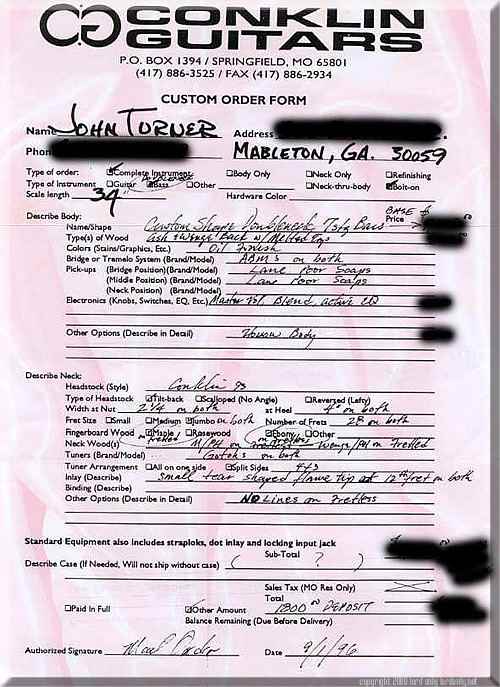 CONKLIN
GUITARS
P.O. BOX 1394 / SPRINGFIELD, MO 65801
(417) 886-3525 / FAX (417) 886-2934
CUSTOM ORDER FORM
Name John Turner Address
Phon MABLETON, GA. 30059
Type of order: Complete Instrument Body Only Neck Only Refinishing
Type of Instrument Guitar Bass Other Neck-thru-body Bolt-on
Scale length 34" Hardware Color
Describe Body: BASE Price
Name/Shape Custom Shape Doubleneck 7stg Bass
Type(s) of Wood Ash Back w/ Melted Tops
Colors (Stains/Graphics, Etc.) Oil Finish
Bridge or Tremelo System (Brand/Model) ABM's on both
Pick-ups (Bridge Position)(Brand/Model) Lane Poor
(Middle Position) (Brand/Model) Lane Poor
(Neck Position) (Brand/Model)
Electronics (Knobs, Switches, EQ, Etc.) Master Vol, Blend, active EQ
Other Options (Describe in Detail) Body
Describe Neck:
Headstock (Style) Conklin
Type of Headstock Tilt-back Scalloped (No Angle) Reversed (Lefty)
Width at Nut 2 1/4 on both at Heel 4" on both
Fret Size Small Medium Jumbo on both Number of Frets 28 on both
Fingerboard Wood Maple Rosewood Ebony Other
Neck Wood(s) fretted on fretless on Fretted
Tuners (Brand/Model) Gotohs on both
Tuner Arrangement All on one side Split Sides 4+3
Inlay (Describe) small tear shaped flame tip at 12th fret on both
Binding (Describe)
Other Options (Describe in Detail) NO Lines on Fretless
Standard Equipment also includes straploks, dot inlay and locking input jack
Sub-Total
Describe Case (If Needed, Will not ship without case) ( ? )
Sales Tax (MO Res Only)
Total
Paid In Full Other Amount 1800 DEPOSIT
Balance Remaining (Due Before Delivery)
Authorized Signature Date 9/1/96